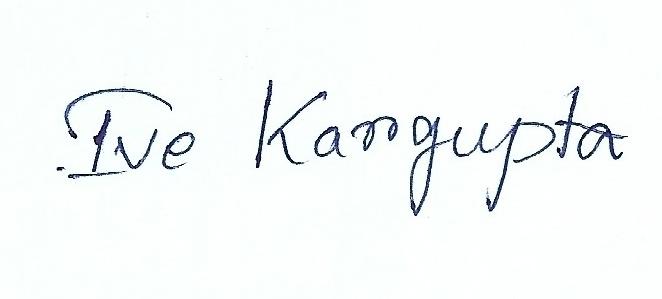 Ive Karrgupta